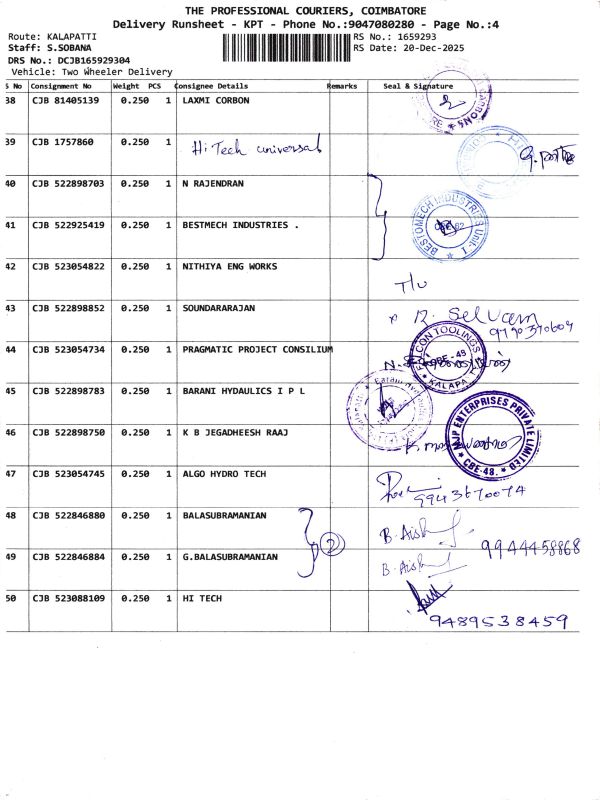 THE PROFESSIONAL COURIERS, COIMBATORE
Delivery Runsheet - KPT - Phone No.:9047080280 - Page No.:4
Route: KALAPATTI
RS No.: 1659293
Staff: S.SOBANA
RS Date: 20-Dec-2025
DRS No.: DCJB165929304
Vehicle: Two Wheeler Delivery
S No Consignment No Weight PCS Consignee Details Remarks Seal & Signature
38 CJB 81405139 0.250 1 LAXMI CORBON
39 CJB 1757860 0.250 1 Hi Tech universal
40 CJB 522898703 0.250 1 N RAJENDRAN
41 CJB 522925419 0.250 1 BESTMECH INDUSTRIES . BESTOMECH INDUSTRIES Unit-1
42 CJB 523054822 0.250 1 NITHIYA ENG WORKS
43 CJB 522898852 0.250 1 SOUNDARARAJAN R. Selvam
44 CJB 523054734 0.250 1 PRAGMATIC PROJECT CONSILIUM FALCON TOOLINGS CBE-48
45 CJB 522898783 0.250 1 BARANI HYDAULICS I P L
46 CJB 522898750 0.250 1 K B JEGADHEESH RAAJ MJP ENTERPRISES PRIVATE LIMITED CBE-48.
47 CJB 523054745 0.250 1 ALGO HYDRO TECH 9943670074
48 CJB 522846880 0.250 1 BALASUBRAMANIAN 2 B. Aish 9944458868
49 CJB 522846884 0.250 1 G.BALASUBRAMANIAN B. Aish
50 CJB 523088109 0.250 1 HI TECH 9489538459